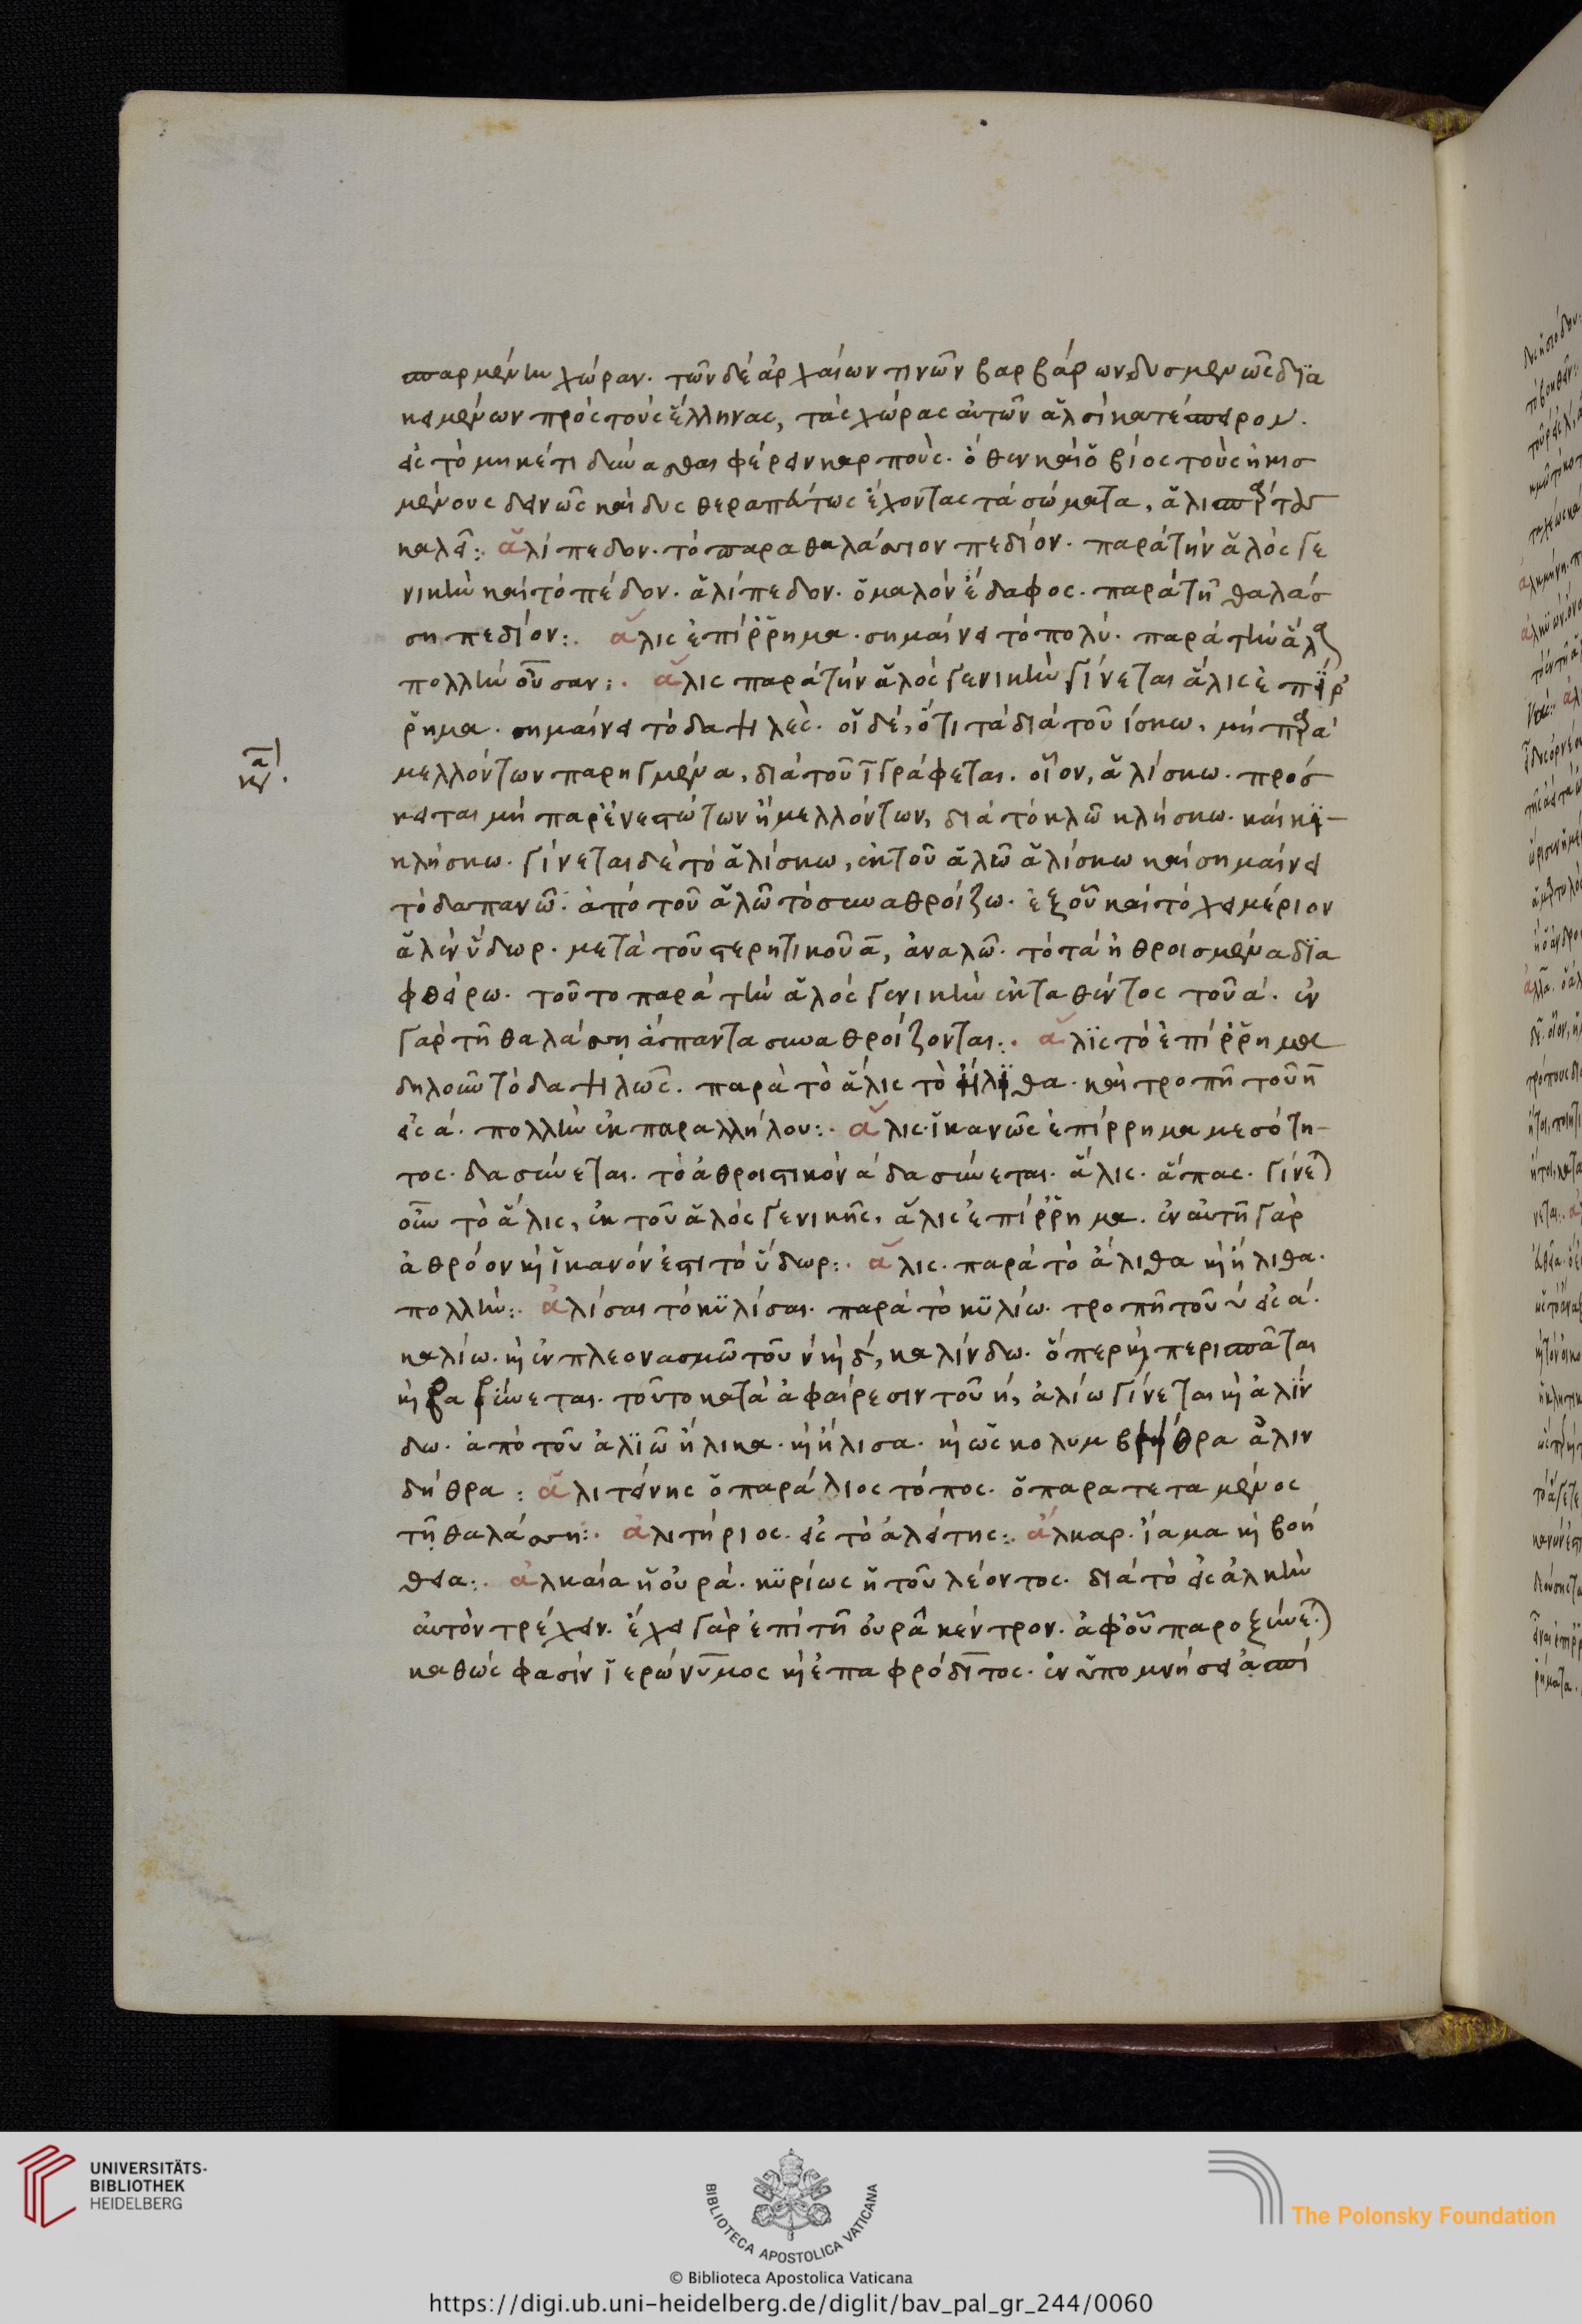 σπαρμένην χώραν. τῶν δὲ ἀρχαίων τινῶν βαρβάρων, δυσμενῶς δϊα
κειμένων πρὸς τοὺς ἕλληνας, τὰς χώρας αὐτῶν ἁλσὶ κατέσπειρον.
εἰς τὸ μηκέτι δύνασθαι φέρειν καρποὺς. ὅθεν καὶ ὁ βίος τοὺς ἠκισ
μένους δεινῶς καὶ δυσθεραπεύτως ἔχοντας τὰ σώματα, ἁλισπάρτους
καλεῖ: ἁλίπεδον. τὸ παραθαλάσσιον πεδίον. παρὰ τὴν ἁλὸς γε
νικὴν καὶ τὸ πέδον. ἁλίπεδον. ὁμαλὸν ἔδαφος. παρὰ τῆ θαλάσ
ση πεδίον: ἅλις ἐπίρρημα. σημαίνει τὸ πολύ. παρὰ τὴν ἅλα
πολλὴν οὖσαν: ἅλις παρὰ τὴν ἁλὸς γενικὴν γίνεται ἅλις ἐπίρ
ρημα. σημαίνει τὸ δαψιλὲς. οἱ δέ, ὅτι τὰ διὰ τοῦ ίσκω, μὴ παρὰ
μελλόντων παρηγμένα, διὰ τοῦ ι γράφεται. οἷον, ἁλίσκω. πρόσ
κειται μὴ παρ' ἐνεστώτων ἢ μελλόντων, διὰ τὸ κλῶ κλήσκω. καὶ κι
κλήσκω. γίνεται δὲ τὸ ἁλίσκω, ἐκ τοῦ ἁλῶ ἁλίσκω καὶ σημαίνει
τὸ δαπανῶ. ἀπὸ τοῦ ἁλῶ τὸ συναθροίζω. ἐξ οὗ καὶ τὸ χειμέριον
ἁλὲν ὕδωρ. μετὰ τοῦ στερητικοῦ α, ἀναλῶ. τὸ τὰ ἠθροισμένα δϊα
φθείρω. τοῦτο παρὰ τὴν ἁλὸς γενικὴν ἐκταθέντος τοῦ α. ἐν
γὰρ τῆ θαλάσση ἅπαντα συναθροίζονται: ἅλϊς τὸ ἐπίρρημα
δηλοῦν τὸ δαψιλῶς. παρὰ τὸ ἅλις τὸ ἤλϊθα. καὶ τροπῆ τοῦ η
εἰς α. πολλὴν ἐκ παραλλήλου: ἅλις. ἱκανῶς ἐπίρρημα μεσότη
τος. δασύνεται. τὸ ἀθροιστικὸν α δασύνεται. ἅλις. ἅπας. γίνεται
οὖν τὸ ἅλις, ἐκ τοῦ ἁλὸς γενικῆς, ἅλις ἐπίρρημα. ἐν αὐτῆ γὰρ
ἀθρόον κὴ ἱκανόν ἐστι τὸ ὕδωρ: ἅλις. παρὰ τὸ ἄλιθα κὴ ἤλιθα.
πολλὴν: ἀλίσαι τὸ κϋλίσαι. παρὰ τὸ κϋλίω. τροπῆ τοῦ υ εἰς α.
καλίω. κὴ ἐν πλεονασμῶ τοῦ ν κὴ δ, καλίνδω. ὅπερ κὴ περισπᾶται
κὴ βαρύνεται. τοῦτο κατὰ ἀφαίρεσιν τοῦ κ, ἀλίω γίνεται κὴ ἀλϊν
δω. ἀπὸ τοῦ ἀλϊῶ ἤλικα. κὴ ἤλισα. κὴ ὡς κολυμβήθρα ἁλιν
δήθρα: ἁλιτενὴς ὁ παράλιος τόπος. ὁ παρατεταμένος
τῆ θαλάσση: ἀλιτήριος. εἰς τὸ ἀλείτης: ἄλκαρ. ἴαμα κὴ βοή
θεια: ἀλκαία ἡ οὐρὰ. κϋρίως ἡ τοῦ λέοντος. διὰ τὸ εἰς ἀλκὴν
αὐτὸν τρέχειν. ἔχει γὰρ ἐπὶ τῆ οὐρᾶ κέντρον. ἀφ' οὗ παροξύνεται
καθὼς φασὶν ἱερώνυμος κὴ ἐπαφρόδιτος. ἐν ὑπομνήσει ἀσπί